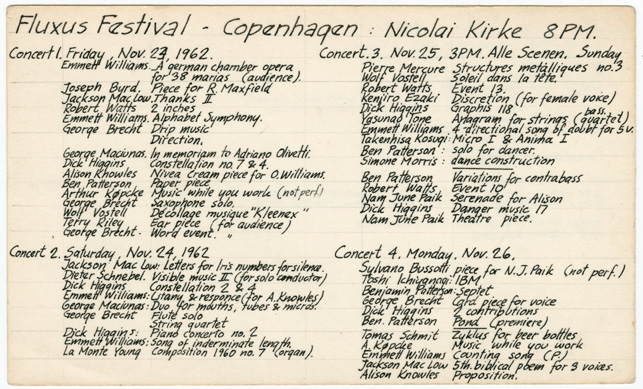 Fluxus Festival - Copenhagen: Nicolai Kirke 8PM.
Concert 1. Friday, Nov. 23, 1962.
Emmett Williams. A german chamber opera
for '38 marias (audience).
Joseph Byrd. Piece for R. Maxfield
Jackson Mac Low. Thanks II
Robert Watts 2 inches
Emmett Williams. Alphabet Symphony.
George Brecht Drip music
Direction.
George Maciunas. In memoriam to Adriano Olivetti.
Dick Higgins Constellation no. 7 & 4
Alison Knowles Nivea Cream piece for O. Williams.
Ben Patterson Paper piece
Arthur Køpcke Music while you work (not perf.)
George Brecht Saxophone solo.
Wolf Vostell Décollage musique "Kleenex"
Terry Riley Ear piece (for audience)
George Brecht. Word event. "
Concert 2. Saturday, Nov. 24, 1962
Jackson Mac Low Letters for Iris numbers for silence.
Dieter Schnebel. Visible music II (for solo conductor)
Dick Higgins Constellation 2 & 4
Emmett Williams: Litany & responce (for A. Knowles)
George Maciunas: Duo for mouths, tubes & micros.
George Brecht Flute solo
String quartet
Dick Higgins: Piano concerto no. 2
Emmett Williams: Song of inderminate length.
La Monte Young Composition 1960 no. 7 (organ).
Concert. 3. Nov. 25, 3PM. Alle Scenen. Sunday
Pierre Mercure Structures métalliques no. 3
Wolf Vostell Soleil dans la tête.
Robert Watts Event 13.
Kenjiro Ezaki Discretion (for female voice)
Dick Higgins Graphis 118
Yasunao Tone Anagram for strings (bass quartet)
Emmett Williams 4 directional song of doubt for 5v.
Takenhisa Kosugi Micro I & Anima I
Ben Patterson: solo for dancer.
Simone Morris: dance construction
Ben Patterson Variations for contrabass
Robert Watts Event 10
Nam June Paik Serenade for Alison
Dick Higgins Danger music 17
Nam June Paik Theatre piece.
Concert 4. Monday, Nov. 26,
Sylvano Bussotti piece for N.J. Paik (not perf.)
Toshi Ichiyanagi: IBM
Benjamin Patterson: Septet
George Brecht Card piece for voice
Dick Higgins 2 contributions
Ben. Patterson Pond (premiere)
Tomas Schmit Zyklus for beer bottles
A. Køpcke Music while you work
Emmett Williams Counting song (P.)
Jackson Mac Low 5th. biblical poem for 3 voices.
Alison Knowles Proposition.